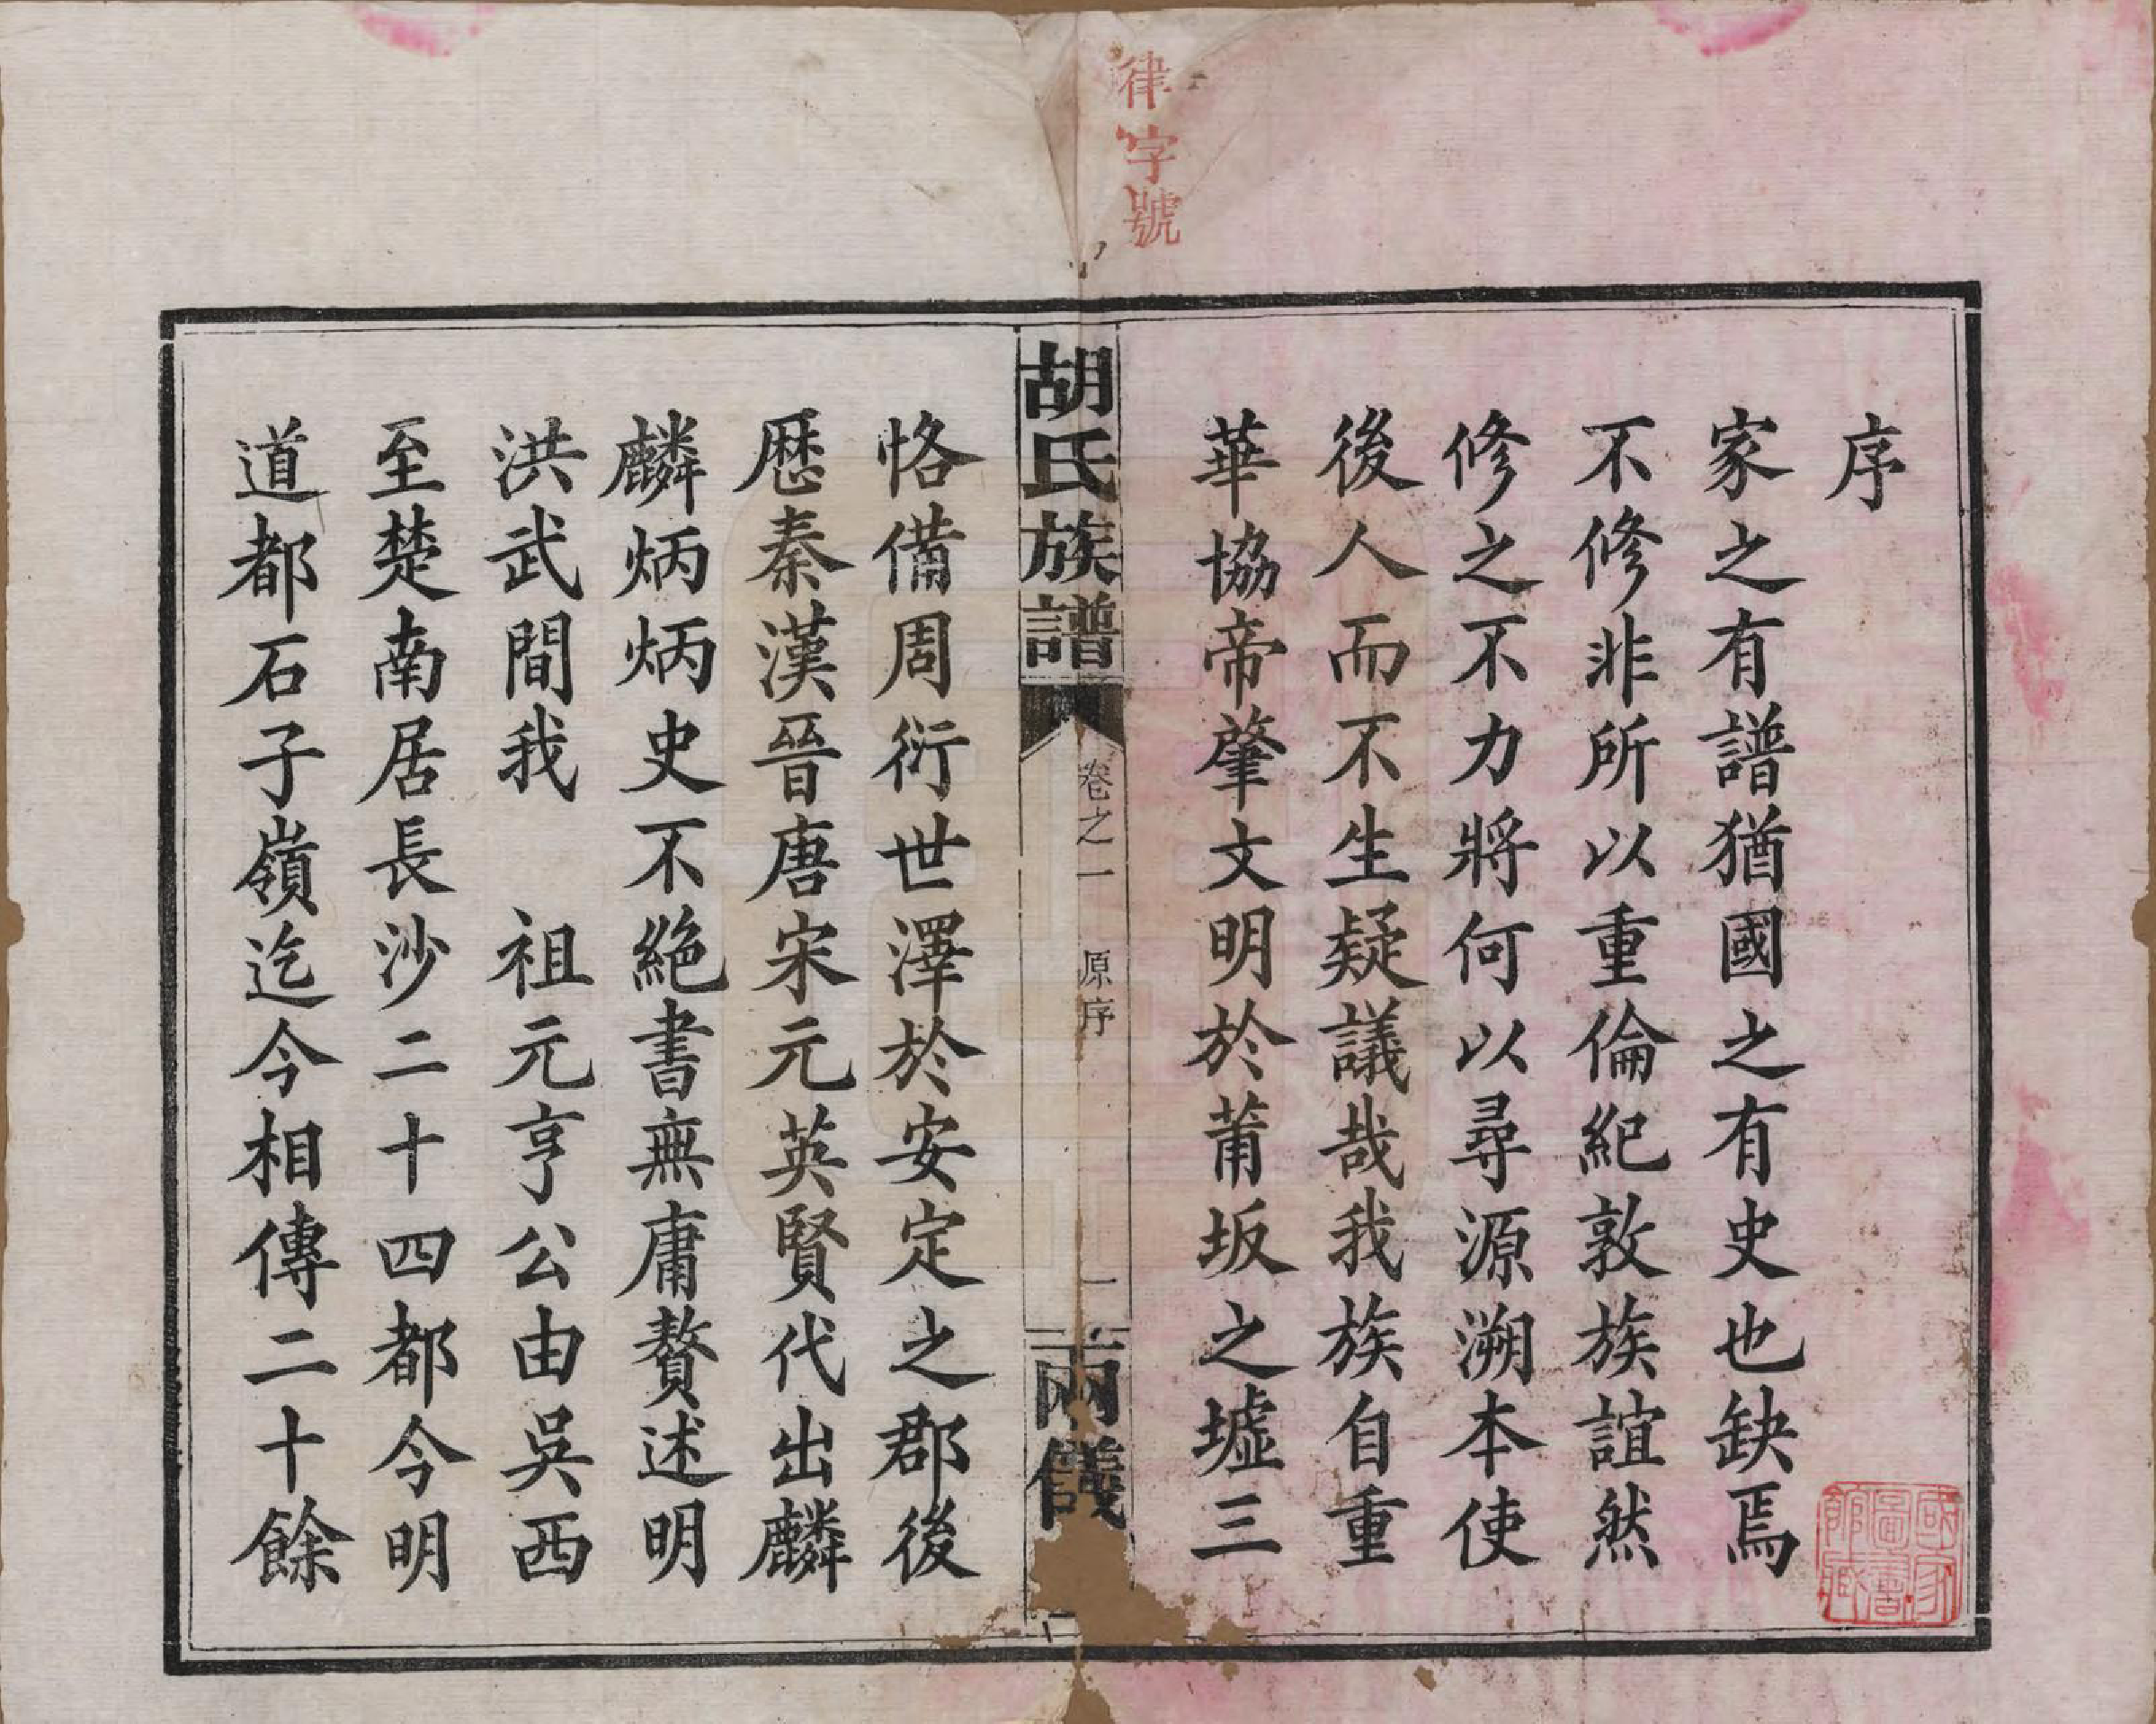 律字號
序
家之有譜猶國之有史也缺焉
不修非所以重倫紀敦族誼然
修之不力將何以尋源溯本使
後人而不生疑議哉我族自重
華協帝肇文明於莆坂之墟三
胡氏族譜
卷之一 原序
一
兩儀
恪備周衍世澤於安定之郡後
歷秦漢晉唐宋元英賢代出麟
麟炳炳史不絕書無庸贅述明
洪武間我 祖元亨公由吳西
至楚南居長沙二十四都今明
道都石子嶺迄今相傳二十餘
國家圖書館藏